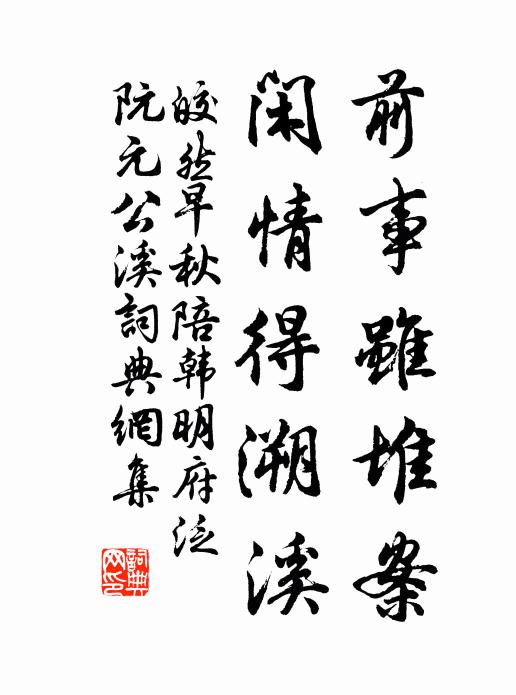 前事雖堆案
閑情得溯溪
皎然早秋陪韩明府泛
阮元公溪詞典網集
詞典